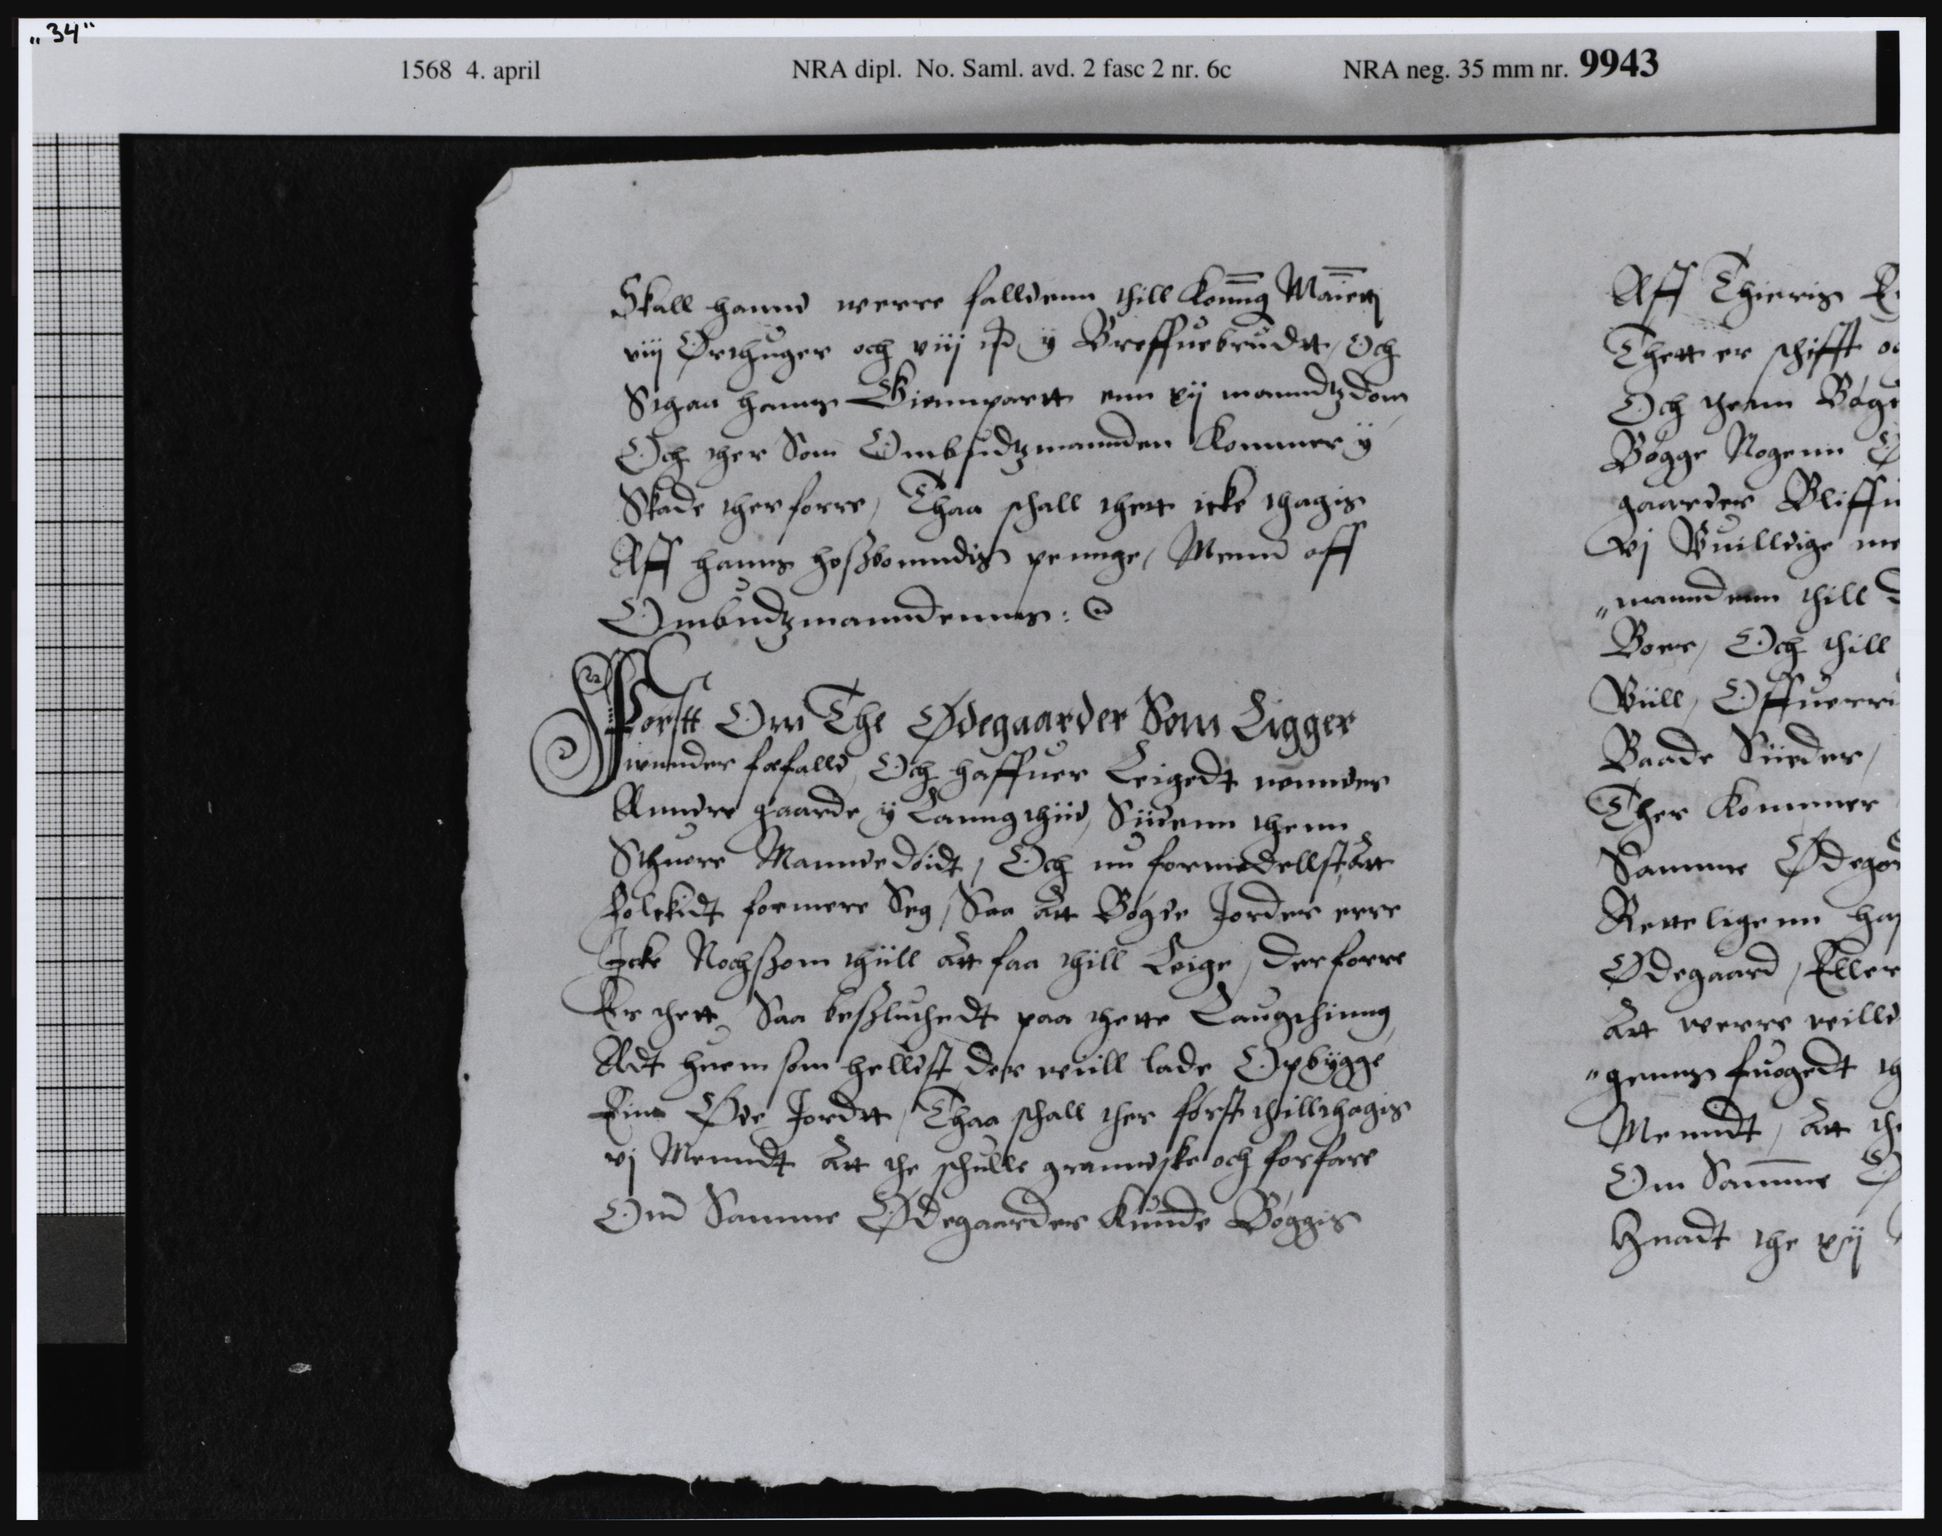 „34“
1568 4. april NRA dipl. No. Saml. avd. 2 fasc 2 nr. 6c NRA neg. 35 mm nr. 9943
Skall hannd werre falldenn thill Konng Maiett
viij Ørthuger och viij ý Breffuebrudtt, Och
Sthaa hanns Giennpartt enn xij manndtzdom
Och ther Som Ombudtzmannden Kommer ý
Skade therforre, Thaa schall thett icke thagis
Aff hanns hoßbonndis pennge, Mennd aff
Ombudtzmanndenns:
Førstt Om The Ødegaarder Som Ligger
wnnder fæfalld, Och haffuer Leigedt wnnder
Anndre gaarde ý Lanng thiid, Siidenn thenn
Sthuore Manndedøidt, Och nu formedellst Att
folckidt formere Seg, Saa Att Bøgde Jorder erre
Icke Nochßom thiill Att faa thill Leige, Derforre
Er thett Saa beßluthedt paa thette Laugthinng
Adt huem som helldst der wiill lade Opbygge
Einn Øde Jordtt, Thaa schall ther først thillthagis
vj Menndt Att the schulle granndske och forfare
Om Samme Ødegaarder Kunde Bøggis
Aff Thieris
Thett er schifft
Och thenn
Bøgge Nogenn
gaarder
vj Wuilldige
manndenn thill
Boer, Och thill
Wiill,
Baade Siieder,
Ther Kommer
Samme
Retteligenn
Ødegaard, Eller
Att werre
genns fuogedt
Menndt, Att
Om Samme
Huadt the xij